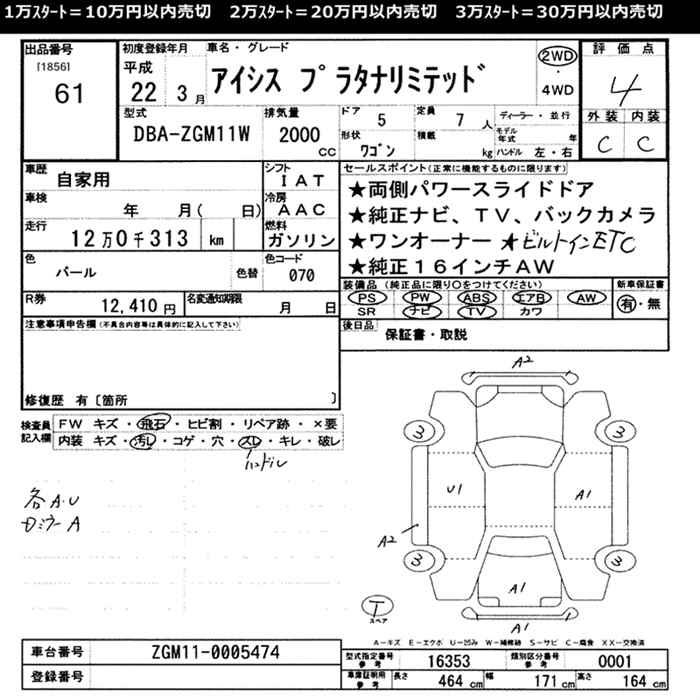 1万ｽﾀｰﾄ＝10万円以内売切　2万ｽﾀｰﾄ＝20万円以内売切　3万ｽﾀｰﾄ＝30万円以内売切
出品番号
[1856]
61
初度登録年月
平成
22 3月
車名・グレード
アイシス プラタナリミテッド
2WD
・
4WD
評価点
4
外装 内装
C C
型式
DBA-ZGM11W
排気量
2000
CC
ドア 5
定員 7人
ディーラー・並行
形状 ワゴン
積載 kg
モデル年式 年
ハンドル 左・右
車歴
自家用
シフト
IAT
車検
年 月( 日)
冷房
AAC
走行
12万0千313 km
燃料
ガソリン
色
パール
色替
色コード
070
R券
12,410円
名変通知期限
月 日
セールスポイント(正常に機能するものに限ります)
★両側パワースライドドア
★純正ナビ、TV、バックカメラ
★ワンオーナー ★ビルトインETC
★純正16インチAW
装備品(純正品に限り○をつけてください)
PS PW ABS エアB AW
SR ナビ TV カワ
新車保証書
有・無
後日品
保証書・取説
注意事項申告欄(不具合内容等は具体的に記入して下さい)
修復歴 有〔箇所 〕
検査員
記入欄
FW キズ・飛石・ヒビ割・リペア跡・×要
内装 キズ・汚れ・コゲ・穴・スレ・キレ・破レ
ハンドル
各A.U
Dミラー A
A2
3
3
U1
A1
A2
3
3
A1
T
スペア
A1
A－キズ E－エクボ U－凹み W－補修跡 S－サビ C－腐食 XX－交換済
車台番号
ZGM11-0005474
登録番号
型式指定番号
参考
16353
類別区分番号
参考
0001
車庫証明用
参考
長さ 464 cm
幅 171 cm
高さ 164 cm